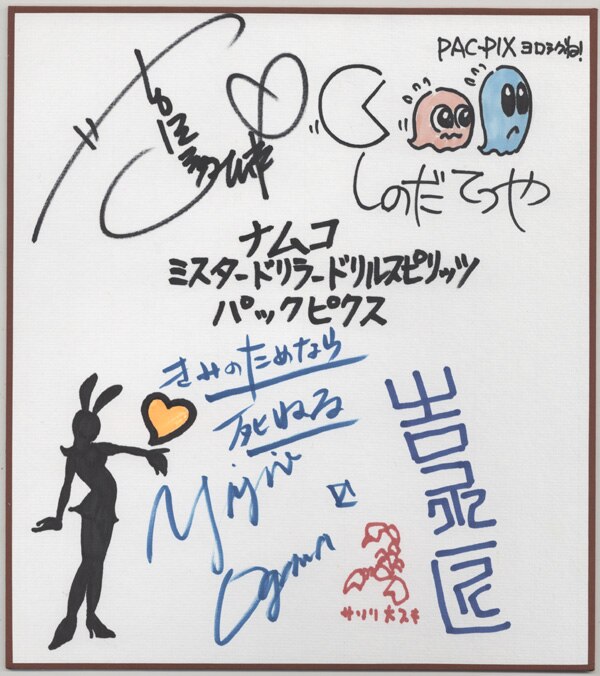 PAC-PIX ヨロシクね!
しのだてつや
ナムコ
ミスタードリラードリルスピリッツ
パックピクス
きみのためなら
死ねる
吉永匠
サソリ大スキ